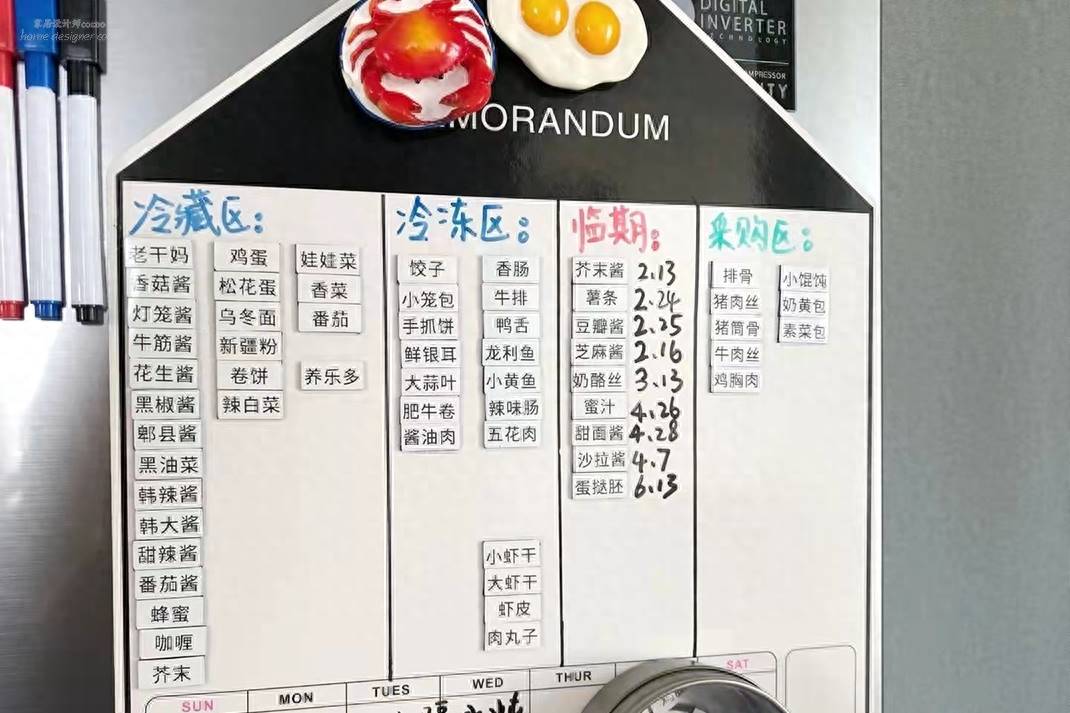 家居设计师cocoo
home designer co
DIGITAL
INVERTER
TECHNOLOGY
MORANDUM
冷藏区:
老干妈
香菇酱
灯笼酱
牛筋酱
花生酱
黑椒酱
郫县酱
黑油菜
韩辣酱
韩大酱
甜辣酱
番茄酱
蜂蜜
咖喱
芥末
鸡蛋
松花蛋
乌冬面
新疆粉
卷饼
辣白菜
娃娃菜
香菜
番茄
养乐多
冷冻区:
饺子
小笼包
手抓饼
鲜银耳
大蒜叶
肥牛卷
酱油肉
香肠
牛排
鸭舌
龙利鱼
小黄鱼
辣味肠
五花肉
小虾干
大虾干
虾皮
肉丸子
临期:
芥末酱 2.13
薯条 2.24
豆瓣酱 2.25
芝麻酱 2.16
奶酪丝 3.13
蜜汁 4.26
甜面酱 4.28
沙拉酱 4.7
蛋挞胚 6.13
采购区:
排骨
猪肉丝
猪筒骨
牛肉丝
鸡胸肉
小馄饨
奶黄包
素菜包
SUN MON TUES WED THUR SAT